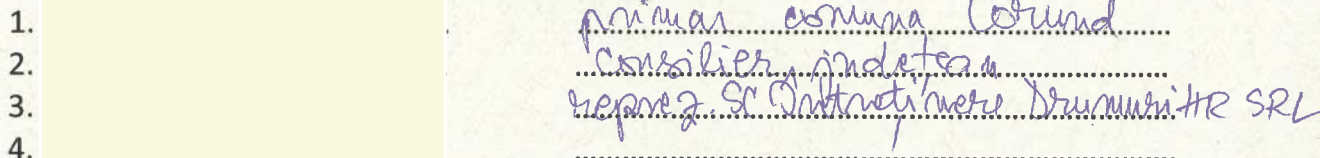 1. primar comuna Corund
2. consilier județean
3. reprez. SC Întreținere Drumuri HR SRL
4.